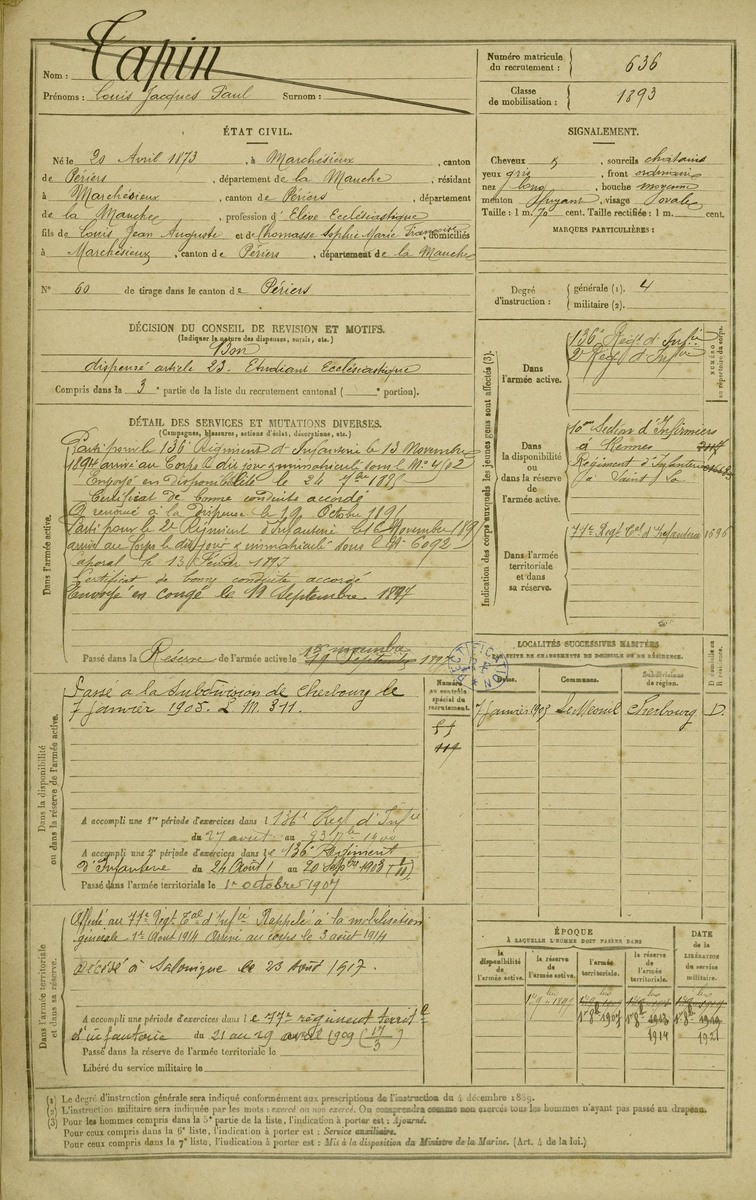 Nom : Tapin
Prénoms : Louis Jacques Paul Surnom :
Numéro matricule du recrutement : 636
Classe de mobilisation : 1893
ÉTAT CIVIL.
Né le 20 Avril 1873, à Marchésieux, canton
de Périers, département de la Manche, résidant
à Marchésieux, canton de Périers, département
de la Manche, profession d'Elève Ecclésiastique
fils de Louis Jean Auguste et de Thomasse Sophie Marie Françoise, domiciliés
à Marchésieux, canton de Périers, département de la Manche
N° 60 de tirage dans le canton de Périers
SIGNALEMENT.
Cheveux , sourcils chatains
yeux gris, front ordinaire
nez long, bouche moyenne
menton fuyant, visage ovale
Taille : 1 m. 70 cent. Taille rectifiée : 1 m. cent.
MARQUES PARTICULIÈRES :
Degré d'instruction : générale (1). 4
militaire (2).
DÉCISION DU CONSEIL DE REVISION ET MOTIFS.
(Indiquer la nature des dispenses, sursis, etc.)
Bon
dispensé article 23. Etudiant Ecclésiastique
Compris dans la 3e partie de la liste du recrutement cantonal ( e portion).
DÉTAIL DES SERVICES ET MUTATIONS DIVERSES.
(Campagnes, blessures, actions d'éclat, décorations, etc.)
Dans l'armée active.
Parti pour le 136e Régiment d'Infanterie le 13 Novembre
1894 arrivé au Corps le dit jour & immatriculé sous le No
Envoyé en Disponibilité le 24 7bre
Certificat de bonne conduite accordé
A renoncé à la Dispense le 19 Octobre
Parti pour le 2e Régiment d'Infanterie le 16 Novembre
arrivé au Corps le dit jour & immatriculé sous le No 6092
Caporal le 13 Février 1897
Certificat de bonne conduite accordé
Envoyé en congé le 19 Septembre 1897
Passé dans la Réserve de l'armée active le 19 Septembre 1897
Indication des corps auxquels les jeunes gens sont affectés (3).
NUMÉRO au répertoire du corps.
Dans l'armée active.
136e Régt d'Infie
2e Régt d'Infie
Dans la disponibilité ou dans la réserve de l'armée active.
10me Section d'Infirmiers
à Rennes
Régiment d'Infanterie
à Saint Lo
Dans l'armée territoriale et dans sa réserve.
77e Régt Tal d'Infanterie 1696
LOCALITÉS SUCCESSIVES HABITÉES
PAR SUITE DE CHANGEMENTS DE DOMICILE OU DE RÉSIDENCE.
Dates. Communes. Subdivisions de région. D domicile ou R résidence.
7 Janvier 1905 Le Mesnil Cherbourg D.
Dans la disponibilité ou dans la réserve de l'armée active.
Numéro au contrôle spécial du recrutement.
Passé à la subdivision de Cherbourg le
7 Janvier 1905. L. M. 311.
A accompli une 1re période d'exercices dans le 136e Régt d'Infie
du 27 août au 23 7bre 1900
A accompli une 2e période d'exercices dans le 136e Régiment
d'Infanterie du 24 Août au 20 Sepbre 1903
Passé dans l'armée territoriale le 1er octobre 1907
Dans l'armée territoriale et dans sa réserve.
Affecté au 77e Régt Tal d'Infie Rappelé à la mobilisation
générale 1er Août 1914 Arrivé au corps le 3 août 1914
Décédé à Salonique le 23 Août 1917.
A accompli une période d'exercices dans le 77e régiment territal
d'infanterie du 21 au 29 avril 1909 (17/3)
Passé dans la réserve de l'armée territoriale le
Libéré du service militaire le
ÉPOQUE
À LAQUELLE L'HOMME DOIT PASSER DANS
DATE de la LIBÉRATION du service militaire.
la disponibilité de l'armée active. la réserve de l'armée active. l'armée territoriale. la réserve de l'armée territoriale.
1er 8bre 1907
1914
1921
(1) Le degré d'instruction générale sera indiqué conformément aux prescriptions de l'instruction du 4 décembre 1889.
(2) L'instruction militaire sera indiquée par les mots : exercé ou non exercé. On comprendra comme non exercés tous les hommes n'ayant pas passé au drapeau.
(3) Pour les hommes compris dans la 5e partie de la liste, l'indication à porter est : Ajourné.
Pour ceux compris dans la 6e liste, l'indication à porter est : Service auxiliaire.
Pour ceux compris dans la 7e liste, l'indication à porter est : Mis à la disposition du Ministre de la Marine. (Art. 4 de la loi.)